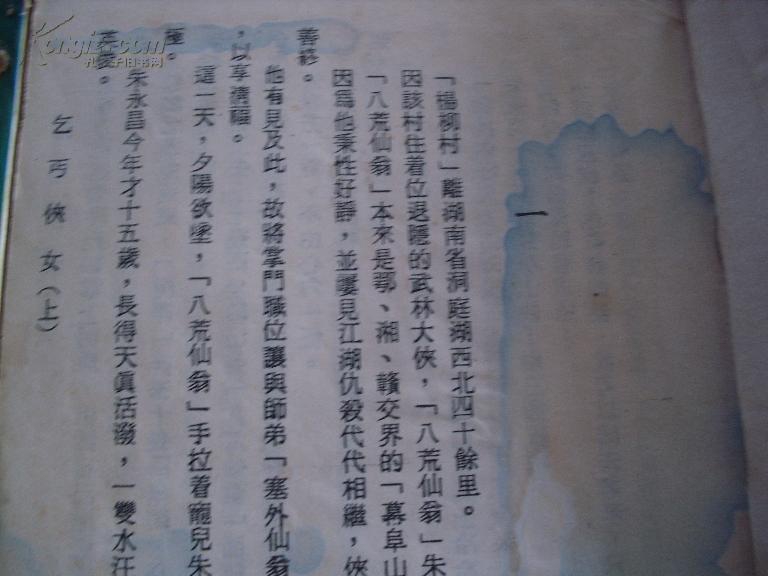 一
「楊柳村」離湖南省洞庭湖西北四十餘里。
因該村住着位退隱的武林大俠，「八荒仙翁」朱
「八荒仙翁」本來是鄂、湘、贛交界的「幕阜山
因爲他秉性好靜，並屢見江湖仇殺代代相繼，俠
善終。
他有見及此，故將掌門職位讓與師弟「塞外仙翁
，以享清福。
這一天，夕陽欲墜，「八荒仙翁」手拉着寵兒朱
極。
朱永昌今年才十五歲，長得天眞活潑，一雙水汪
乞丐俠女（上）
Kongfz.com
孔夫子旧书网